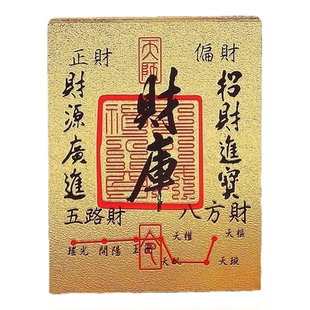 正財
偏財
天師
財源廣進
財庫
招財進寶
五路財
八方財
令
瑤光
開陽
玉衡
天權
天璣
天樞
天璇